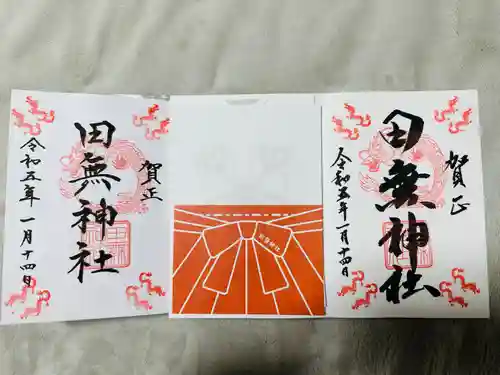 賀正
田無神社
令和五年 一月十四日
田無神社
賀正
田無神社
令和五年 一月十四日